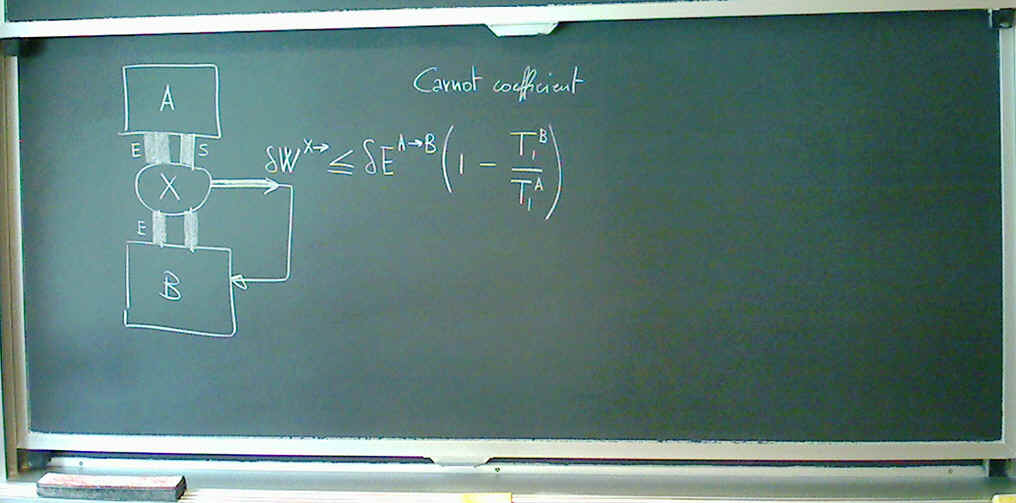 Carnot coefficient
A
E S
δW^{X→} ≤ δE^{A→B} (1 − T_1^B / T_1^A)
X
E
B